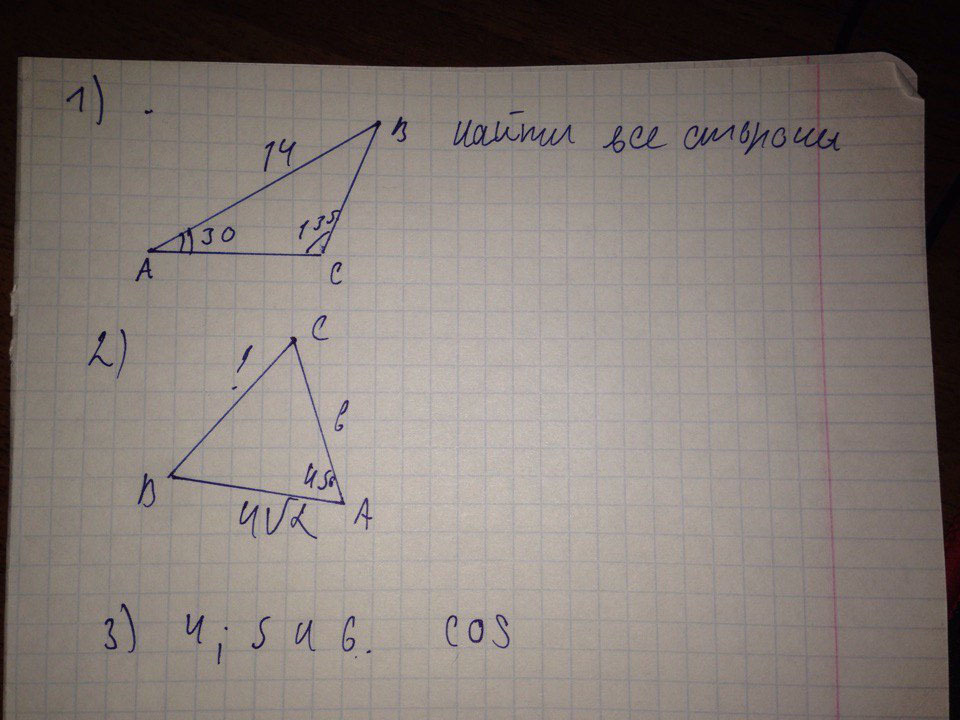 1)
B найти все стороны
14
30 135
A C
2)
C
!
6
45°
B
4√2 A
3) 4; 5 и 6. cos